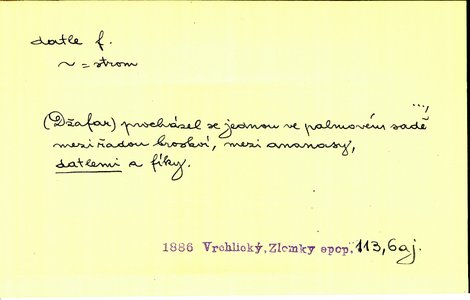 datle f.
~ = strom
...,
(Džafar) procházel se jednou ve palmovém sadě
mezi řadou broskví, mezi ananasy,
datlemi a fíky.
1886 Vrchlický, Zlomky epop. 113,6aj.